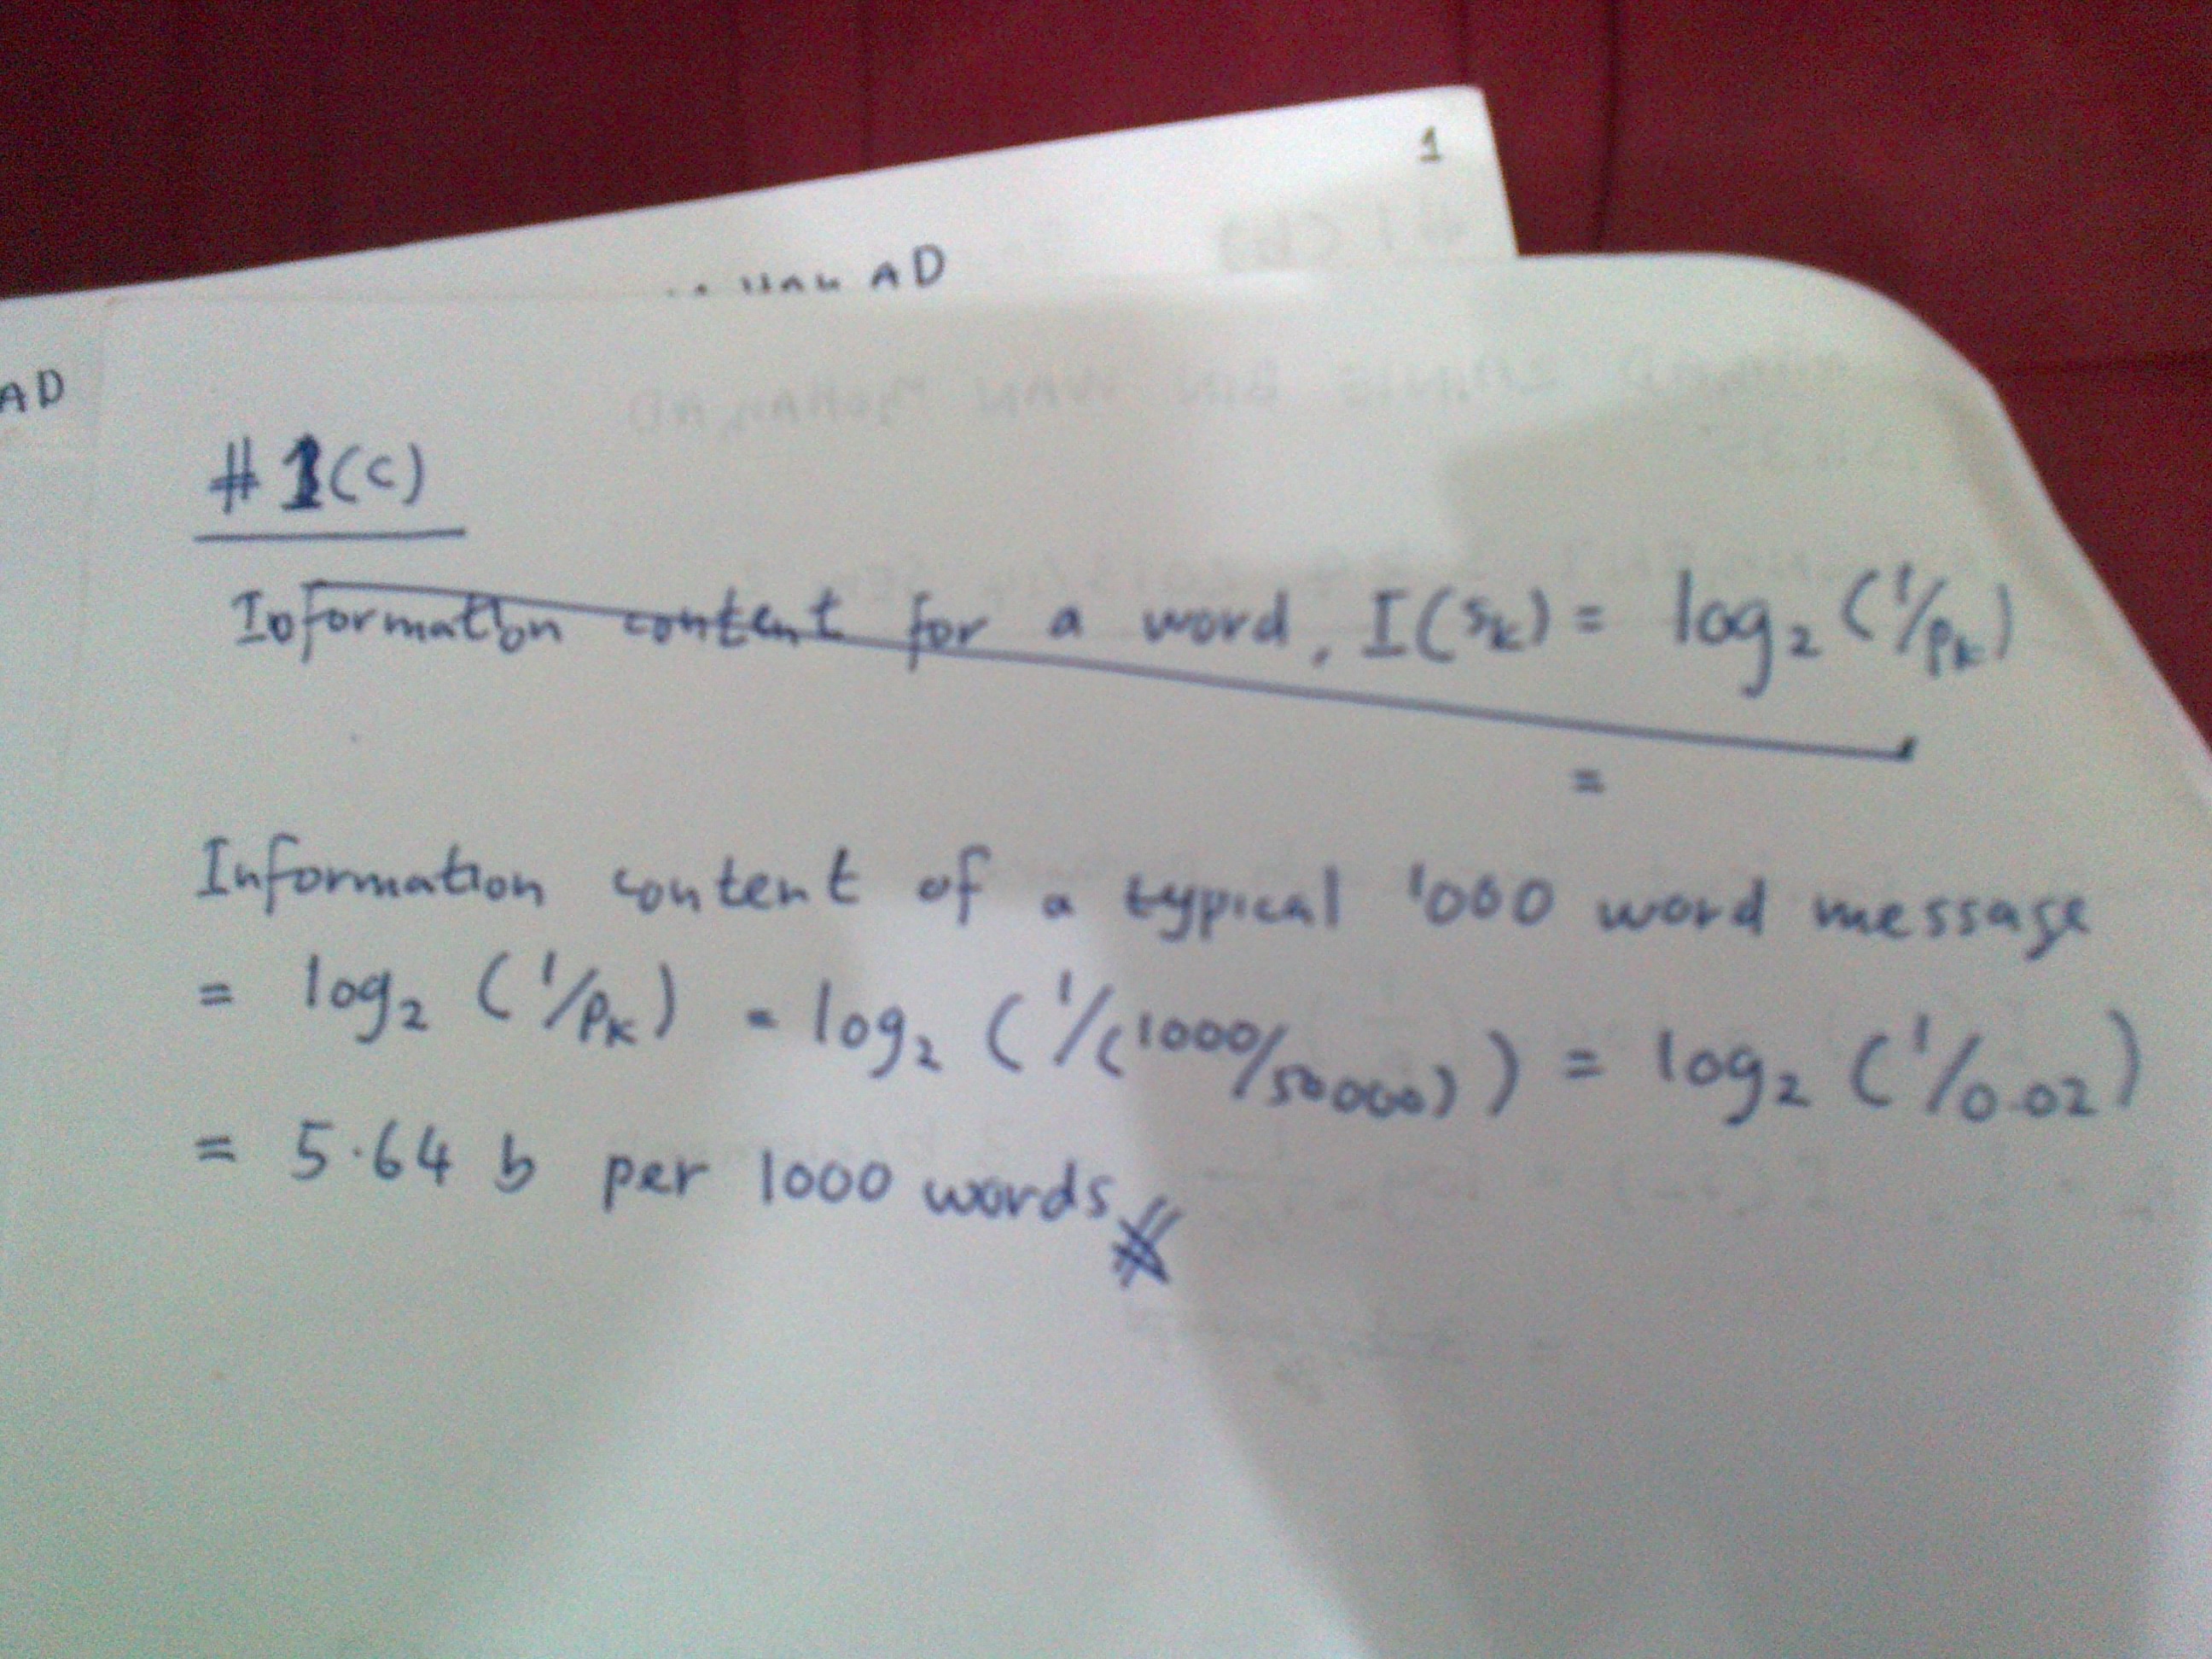 1
AD
AD
#1(c)
Information content for a word, I(sₖ) = log₂ (1/pₖ)
=
Information content of a typical 1000 word message
= log₂ (1/pₖ) = log₂ (1/(1000/50000)) = log₂ (1/0.02)
= 5.64 b per 1000 words #